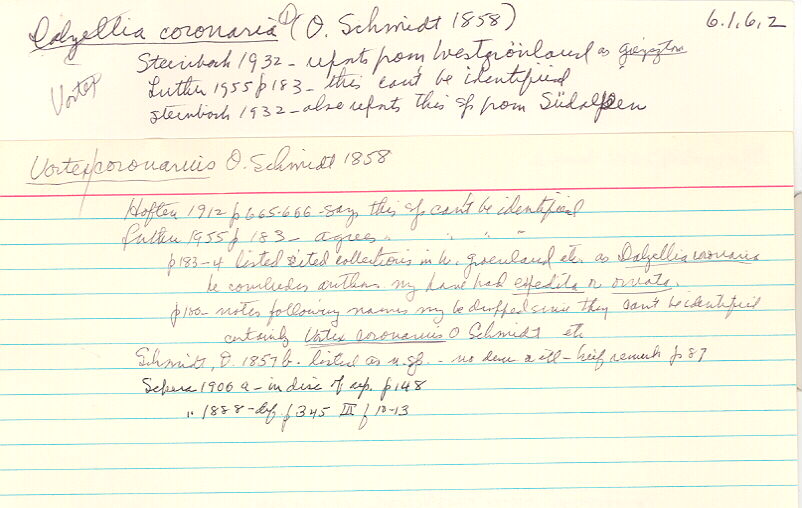 Dalyellia coronaria (O. Schmidt 1858)
6.1,6,2
Steinbock 1932 - reports from Westgrönland as
Vortex
Luther 1955 p 183 - this can't be identified
Steinbock 1932 - also reports this sp from Südalpen
Vortex coronarius O. Schmidt 1858
Hofsten 1912 p 665-666 - says this sp can't be identified
Luther 1955 p 183 - agrees " " "
p 183-4 listed sited collections in W. Greenland etc. as Dalyellia coronaria
he concludes authors may have had expedita or ornata.
p 180 - notes following names may be dropped since they can't be identified
certainly Vortex coronarius O Schmidt etc
Schmidt, O. 1857b. listed as n. sp. - no desc or ill - brief remark p 87
Sekera 1906 a - in disc of rep. p 148
" 1888 - def p 345 III f 10-13